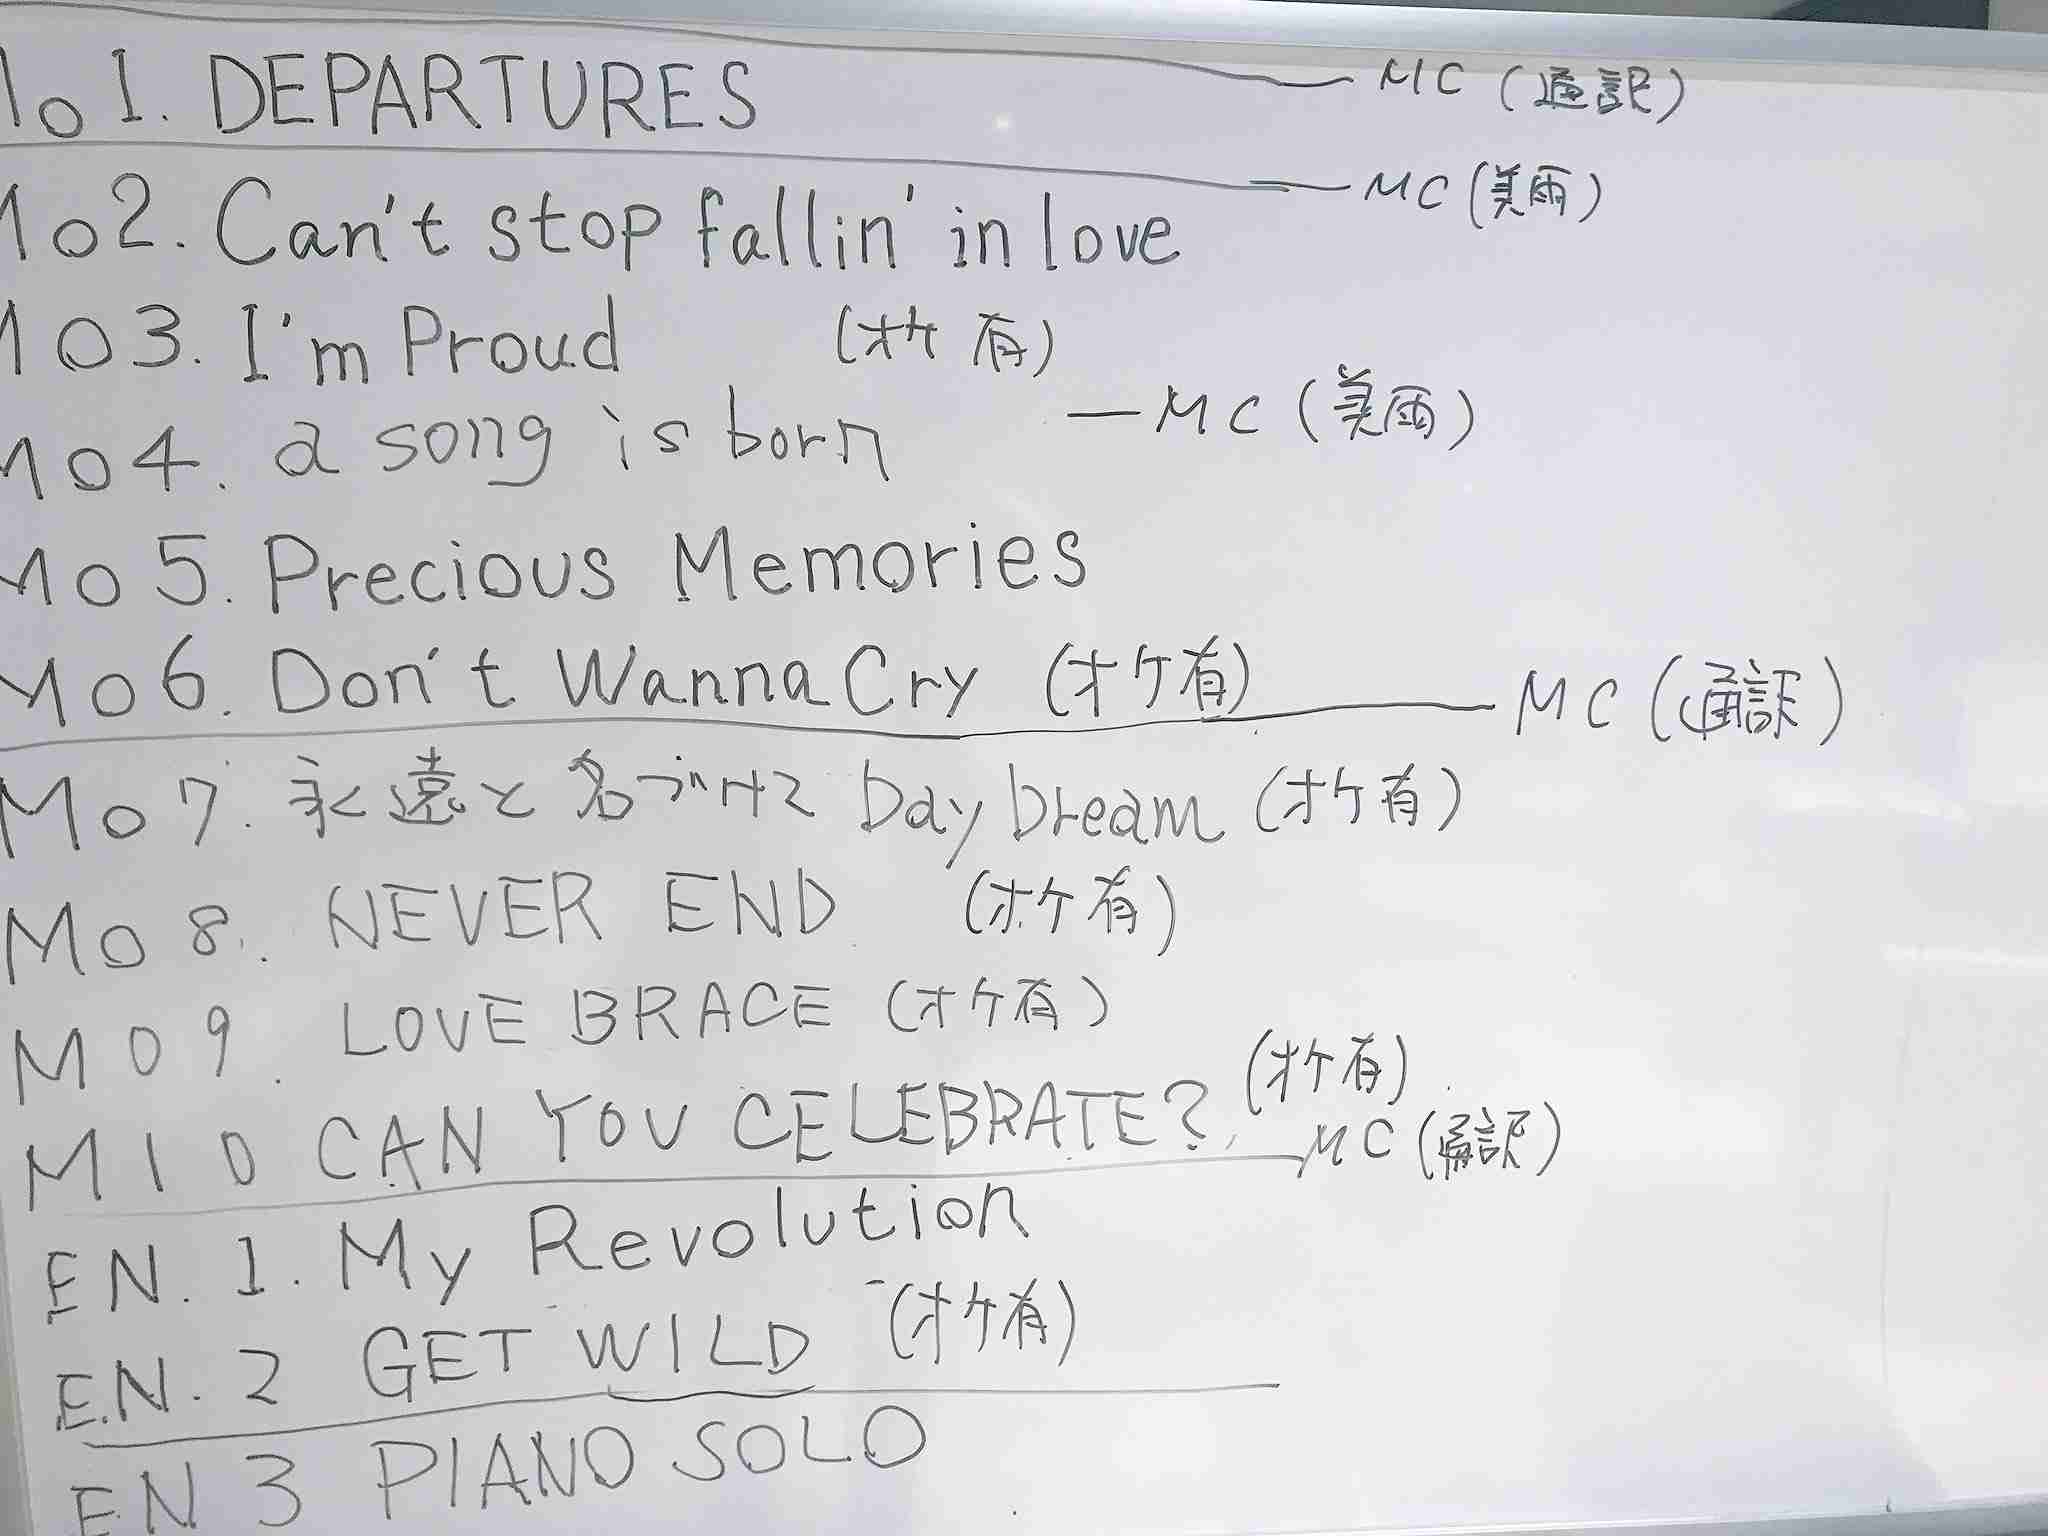 M01. DEPARTURES — MC (通訳)
— MC (美雨)
M02. Can't stop fallin' in love
M03. I'm Proud (オケ有)
— MC (美雨)
M04. a song is born
M05. Precious Memories
M06. Don't Wanna Cry (オケ有)
— MC (通訳)
M07. 永遠と名づけて Day Dream (オケ有)
M08. NEVER END (オケ有)
M09. LOVE BRACE (オケ有)
M10 CAN YOU CELEBRATE? (オケ有)
MC (通訳)
EN. 1. My Revolution
EN. 2 GET WILD (オケ有)
EN 3 PIANO SOLO